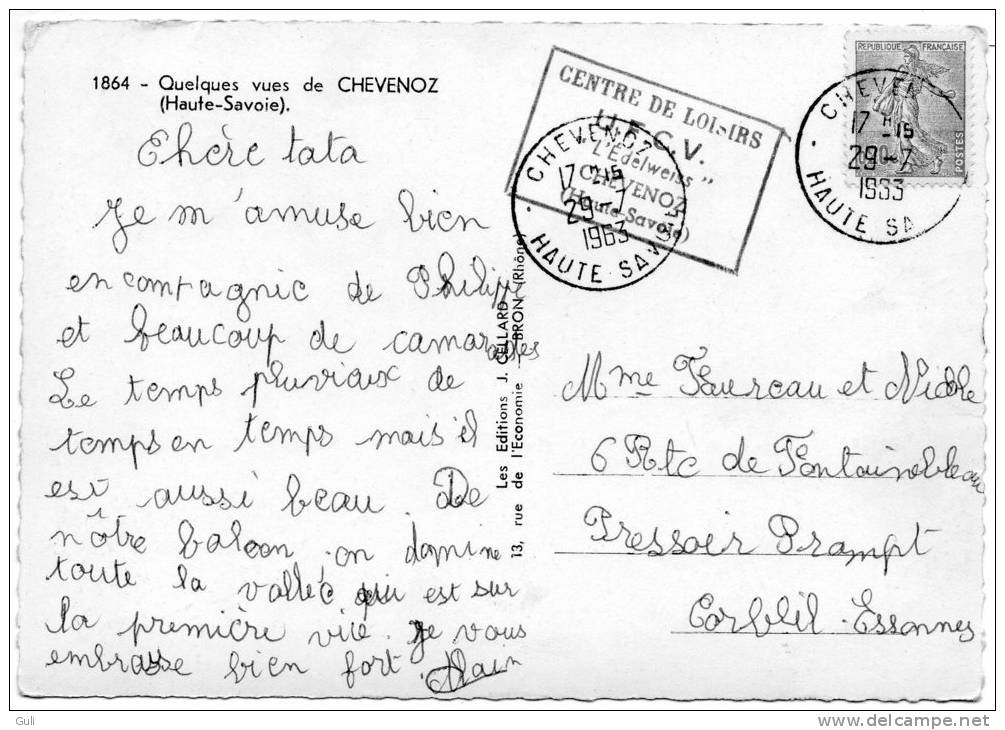 1864 - Quelques vues de CHEVENOZ
(Haute-Savoie).
Chère tata
Je m'amuse bien
en compagnie de Philippe
et beaucoup de camarades
Le temps pluviaux de
temps en temps mais il
est aussi beau. De
nôtre balcon on domine
toute la vallée qui est sur
la première vue. Je vous
embrasse bien fort. Alain
Les Editions J. CELLARD
13, rue de l'Economie - BRON (Rhône)
CENTRE DE LOISIRS
U.F.C.V.
"L'Edelweiss"
CHEVENOZ
(Haute-Savoie)
CHEVENOZ
17 H 15
29-7
1963
HAUTE SAVOIE
REPUBLIQUE FRANÇAISE
POSTES
CHEVEN
17 H 15
29-7
1963
HAUTE SA
Mme Faureau et Nicole
6 Rte de Fontainebleau
Pressoir Prompt
Corbeil-Essonnes
Guli
delcampe.net